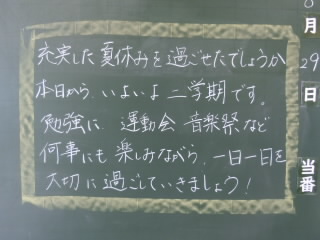 充実した夏休みを過ごせたでしょうか
本日から、いよいよ二学期です。
勉強に、運動会 音楽祭など
何事にも楽しみながら、一日一日を
大切に過ごしていきましょう!
8
月
29
日
当番